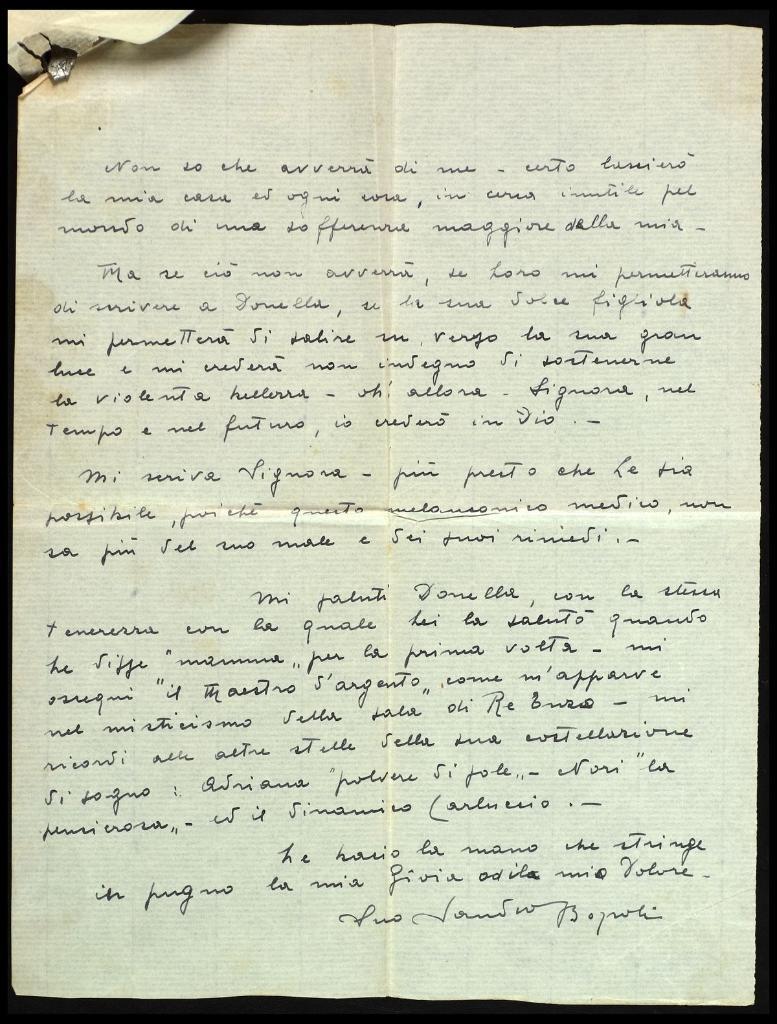 Non so che avverrà di me - certo lascierò
la mia casa ed ogni cosa, in cerca inutile pel
mondo di una sofferenza maggiore della mia -
Ma se ciò non avverrà, se Loro mi permetteranno
di scrivere a Donella, se la sua dolce figliola
mi permetterà di salire su, verso la sua gran
luce e mi crederà non indegno di sostenerne
la violenta bellezza - oh! allora - Signora, nel
tempo e nel futuro, io crederò in Dio . -
Mi scriva Signora - più presto che Le sia
possibile, poiché questo melanconico medico, non
sa più del suo male e dei suoi rimedi . -
Mi saluti Donella, con la stessa
tenerezza con la quale Lei la salutò quando
Le disse "mamma„ per la prima volta - mi
ossequi "il Maestro d'argento„ come m'apparve
nel misticismo della sala di Re Enzo - mi
ricordi alle altre stelle della sua costellazione
di sogno : Adriana "polvere di sole„ - Nori "la
pensierosa„ - ed il dinamico Carluccio . -
Le bacio la mano che stringe
in pugno la mia Gioia od il mio Dolore -
Suo Sandro